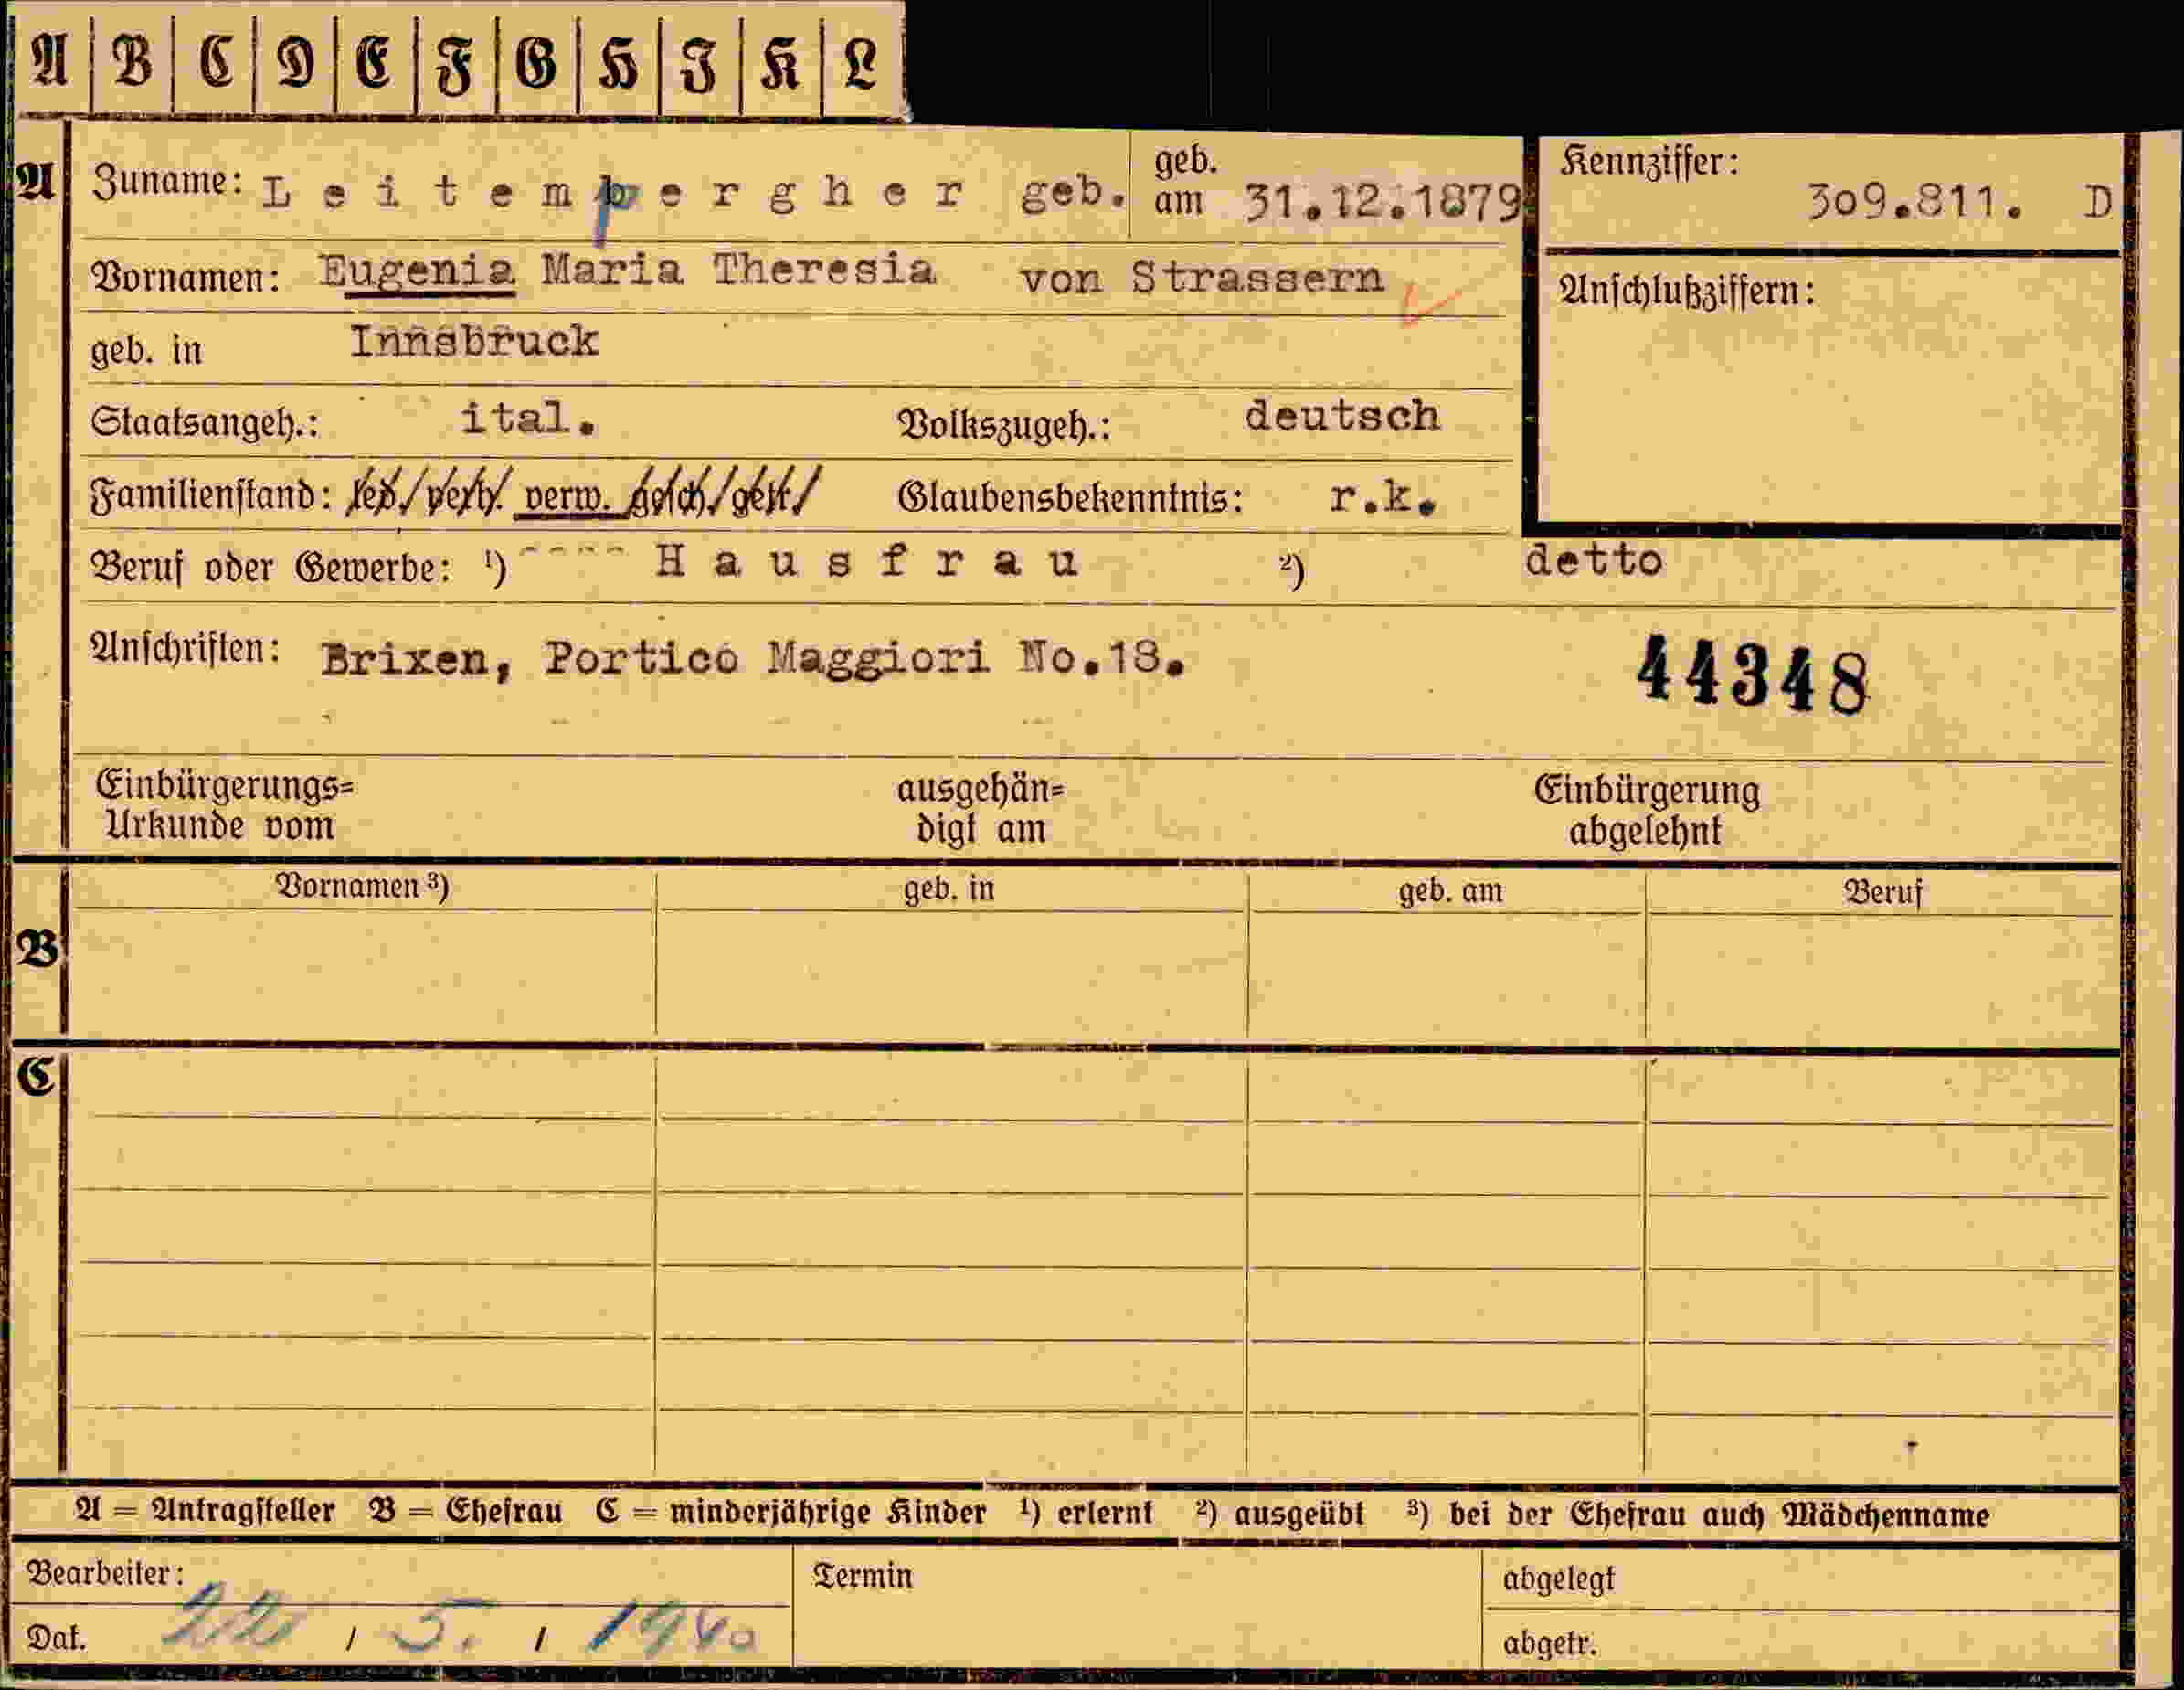 A B C D E F G H I K L
A Zuname: Leitempergher geb. geb. am 31.12.1879 Kennziffer: 309.811. D
Vornamen: Eugenia Maria Theresia von Strassern
Anschlußziffern:
geb. in Innsbruck
Staatsangeh.: ital. Volkszugeh.: deutsch
Familienstand: led./verh. verw. gesch./getr. Glaubensbekenntnis: r.k.
Beruf oder Gewerbe: ¹) Hausfrau ²) detto
Anschriften: Brixen, Portico Maggiori No.18.
44348
Einbürgerungs= ausgehän= Einbürgerung
Urkunde vom digt am abgelehnt
Vornamen ³) geb. in geb. am Beruf
B
C
A = Antragsteller B = Ehefrau C = minderjährige Kinder ¹) erlernt ²) ausgeübt ³) bei der Ehefrau auch Mädchenname
Bearbeiter: Termin abgelegt
Dat. 22 / 5. / 1940 abgetr.